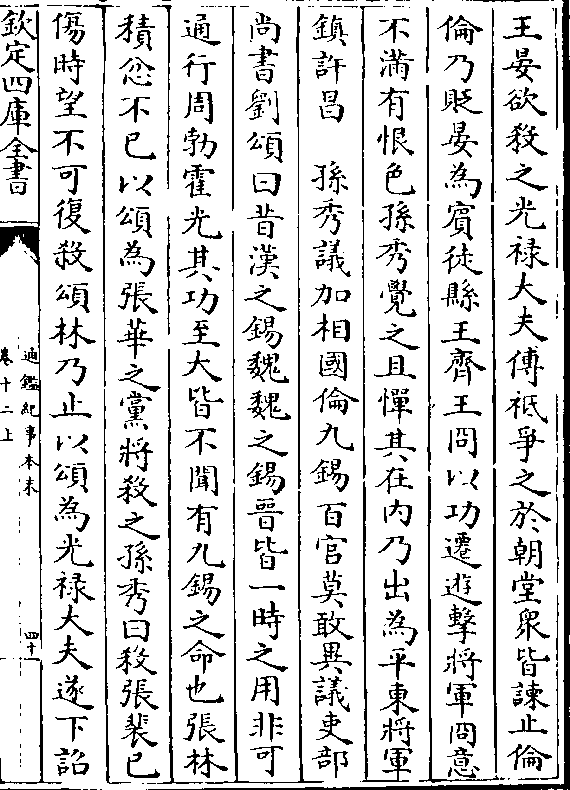 王晏欲殺之光禄大夫傅祗爭之於朝堂衆皆諫止倫
倫乃貶晏為賓徒縣王齊王冏以功遷遊擊將軍冏意
不滿有恨色孫秀覺之且憚其在内乃出為平東將軍
鎮許昌　孫秀議加相國倫九錫百官莫敢異議吏部
尚書劉頌曰昔漢之錫魏魏之錫晉皆一時之用非可
通行周勃霍光其功至大皆不聞有九錫之命也張林
積忿不已以頌為張華之黨將殺之孫秀曰殺張裴已
傷時望不可復殺頌林乃止以頌為光禄大夫遂下詔
欽定四庫全書
通鑑紀事本末
卷十二上
四十